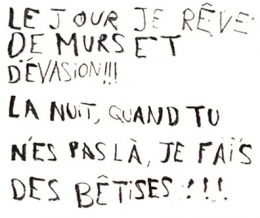 LE JOUR JE RÊVE
DE MURS ET
D'ÉVASION!!!
LA NUIT, QUAND TU
N'ES PAS LÀ, JE FAIS
DES BÊTISES!!!